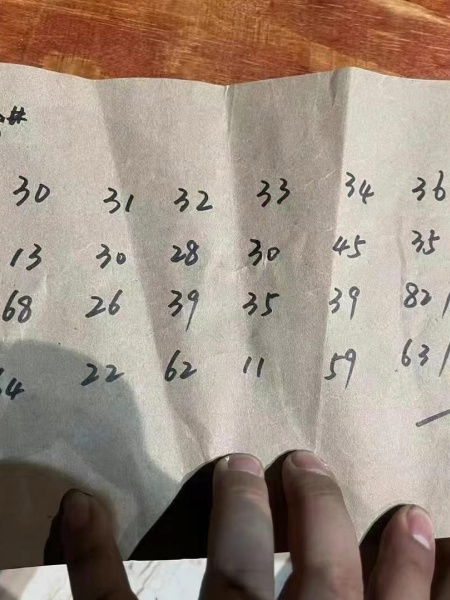 30 31 32 33 34 36
13 30 28 30 45 35
68 26 39 35 39 82
22 62 11 59 63